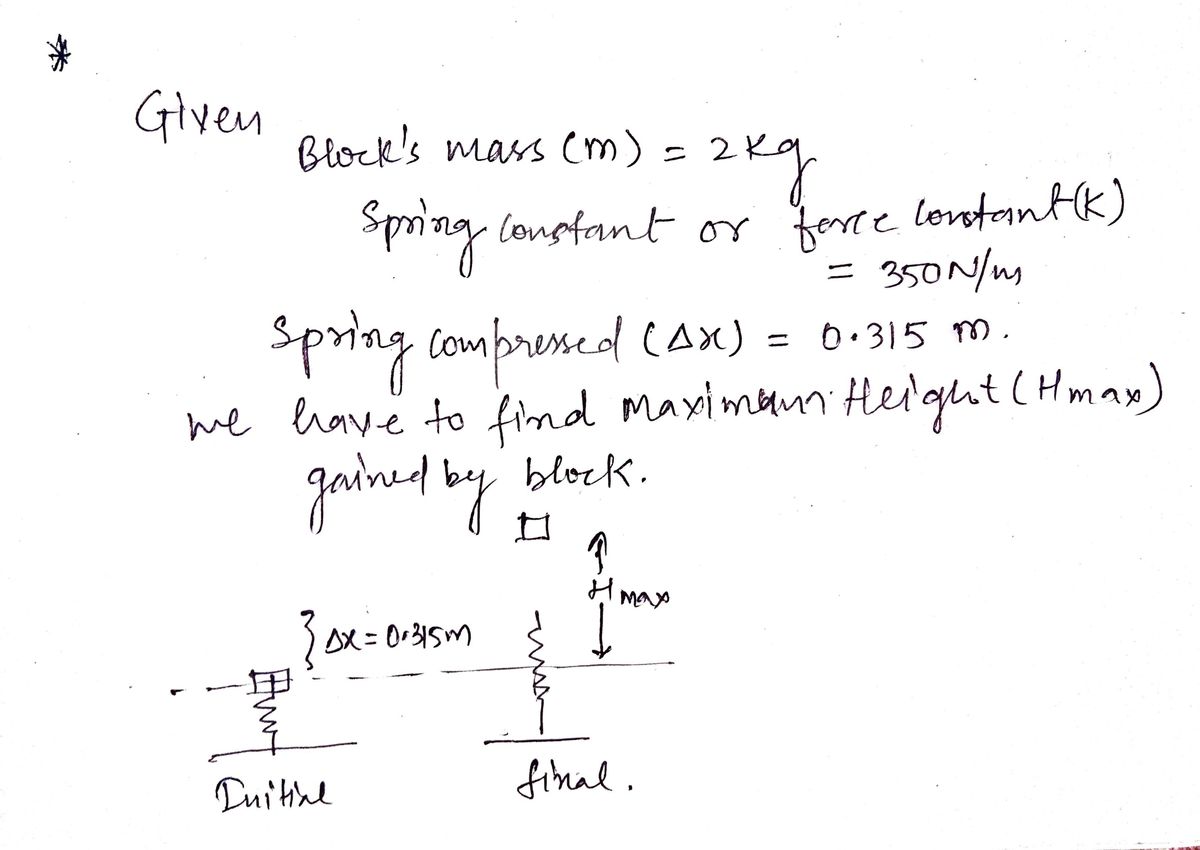 *
Given
Block's mass (m) = 2 Kg
Spring constant or force constant (K)
= 350 N/m
Spring compressed (Δx) = 0.315 m.
we have to find maximum Height (Hmax)
gained by block.
Hmax
} Δx = 0.315m
Initial
final.